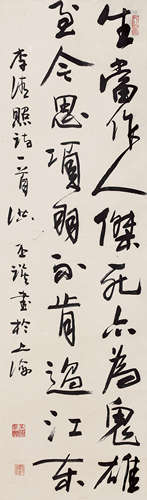 生當作人傑死亦為鬼雄
至今思項羽不肯過江东
李清照詩一首
書於上海